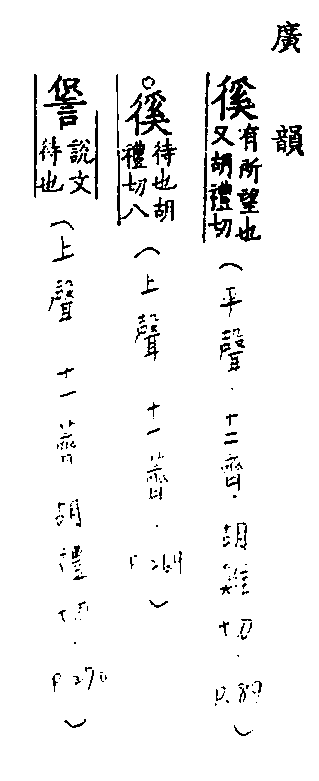 廣韻
徯 有所望也又胡禮切（平聲．十二齊．胡雞切．P.89）
徯 待也胡禮切八（上聲 十一薺．P.269）
䜈 說文待也（上聲 十一薺 胡禮切．P.270）